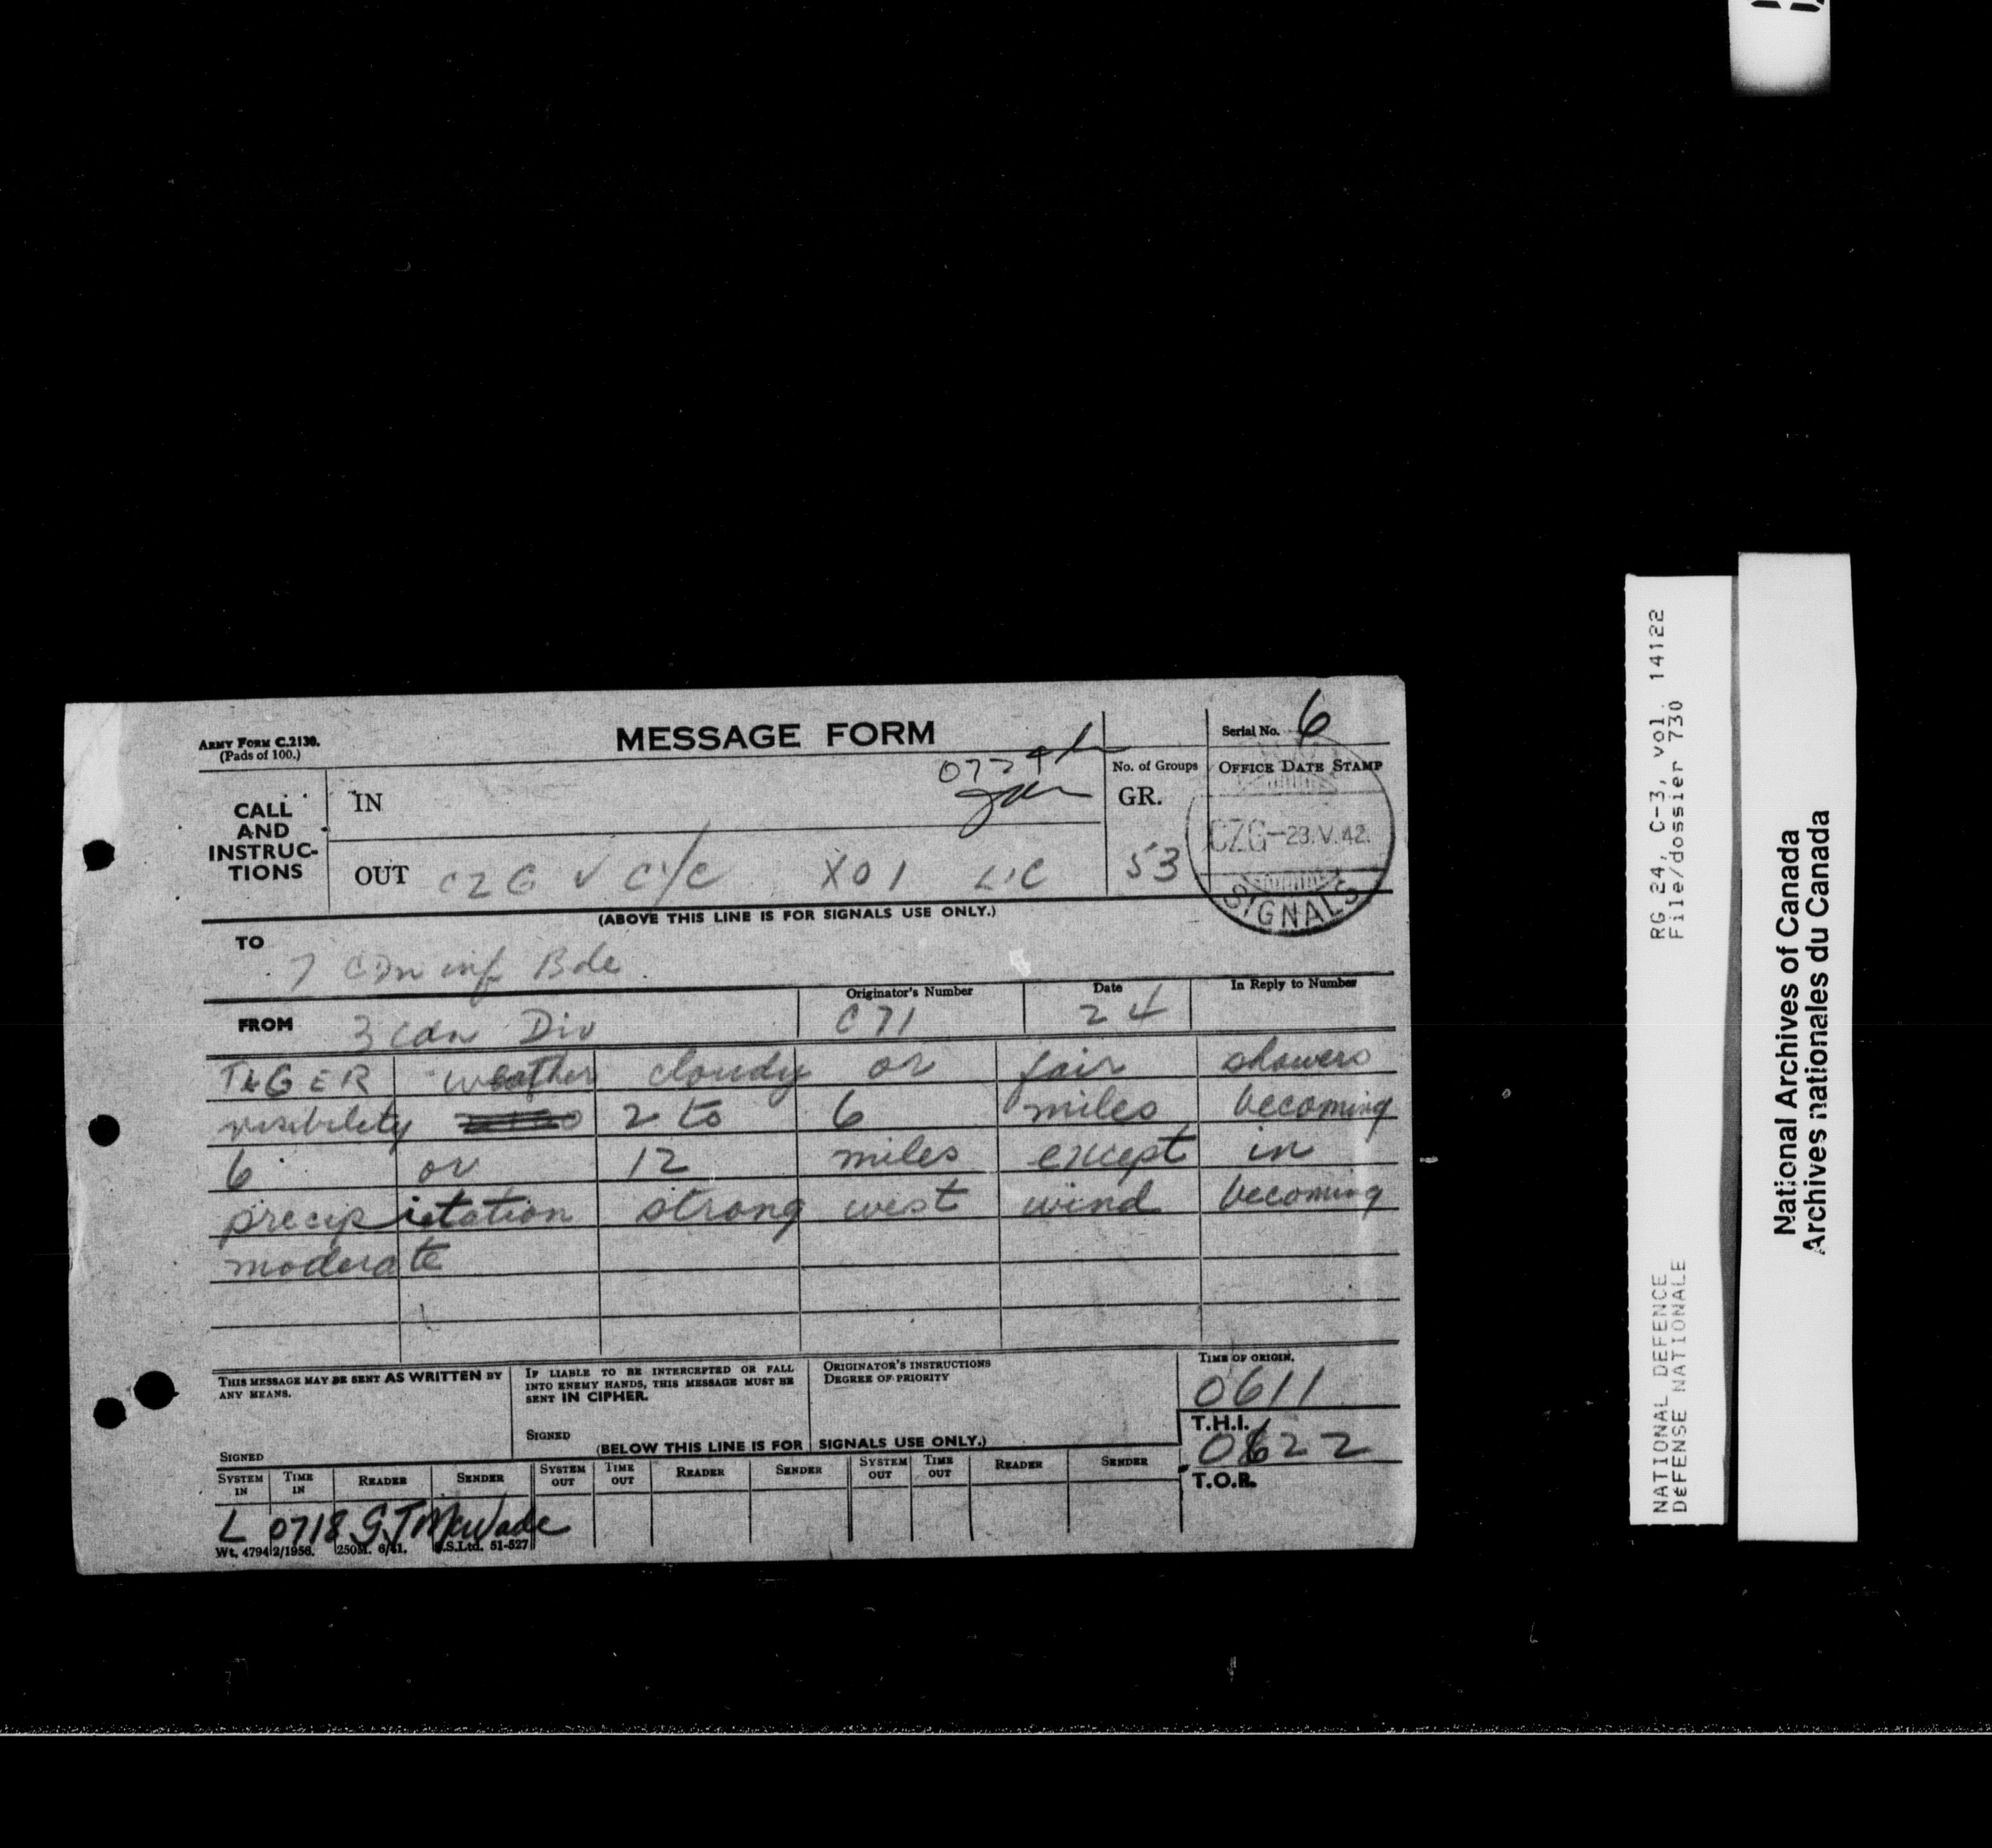 ARMY FORM C.2130.
(Pads of 100.)
MESSAGE FORM
Serial No. 6
CALL AND INSTRUC-TIONS
IN
No. of Groups
GR.
53
OFFICE DATE STAMP
CZG -23.V.42.
SIGNALS
OUT CZG V C/C X01
(ABOVE THIS LINE IS FOR SIGNALS USE ONLY.)
TO
7 Cdn inf Bde
FROM 3 Cdn Div
Originator's Number
C71
Date
24
In Reply to Number
TIGER weather cloudy or fair showers
visibility 2 to 6 miles becoming
6 or 12 miles except in
precipitation strong west wind becoming
moderate
THIS MESSAGE MAY BE SENT AS WRITTEN BY ANY MEANS.
SIGNED
IF LIABLE TO BE INTERCEPTED OR FALL INTO ENEMY HANDS, THIS MESSAGE MUST BE SENT IN CIPHER.
SIGNED
ORIGINATOR'S INSTRUCTIONS
DEGREE OF PRIORITY
TIME OF ORIGIN.
0611
T.H.I.
0622
T.O.R.
(BELOW THIS LINE IS FOR SIGNALS USE ONLY.)
SYSTEM IN TIME IN READER SENDER SYSTEM OUT TIME OUT READER SENDER SYSTEM OUT TIME OUT READER SENDER
L 0718
Wt. 47942/1956. 250M. 6/41. S.S.Ltd. 51-527
RG 24, C-3, vol. 14122
File/dossier 730
NATIONAL DEFENCE
DEFENSE NATIONALE
National Archives of Canada
Archives nationales du Canada